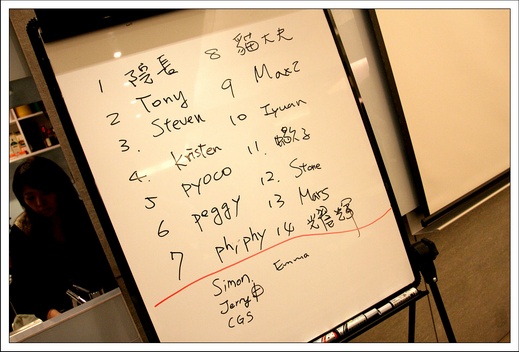 1 院長 8 貓大夫
2 Tony 9 Max2
3. Steven 10 Iyuan
4. Kristen 11.
5 pyoco 12. Stone
6 peggy 13 Mars
7 phiphy 14
Simon, Emma
Jerry
CGS